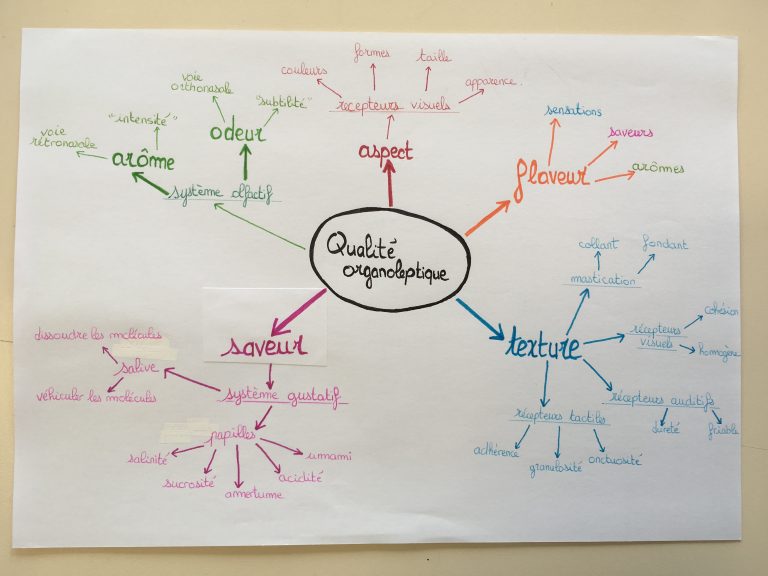 Qualité
organoleptique
aspect
récepteurs visuels
couleurs
formes
taille
apparence
flaveur
sensations
saveurs
arômes
texture
mastication
collant
fondant
récepteurs
visuels
cohésion
homogène
récepteurs auditifs
dureté
friable
récepteurs tactiles
adhérence
granulosité
onctuosité
saveur
système gustatif
salive
dissoudre les molécules
véhiculer les molécules
papilles
salinité
sucrosité
amertume
acidité
umami
système olfactif
arôme
voie
rétronasale
"intensité"
odeur
voie
orthonasale
"subtilité"